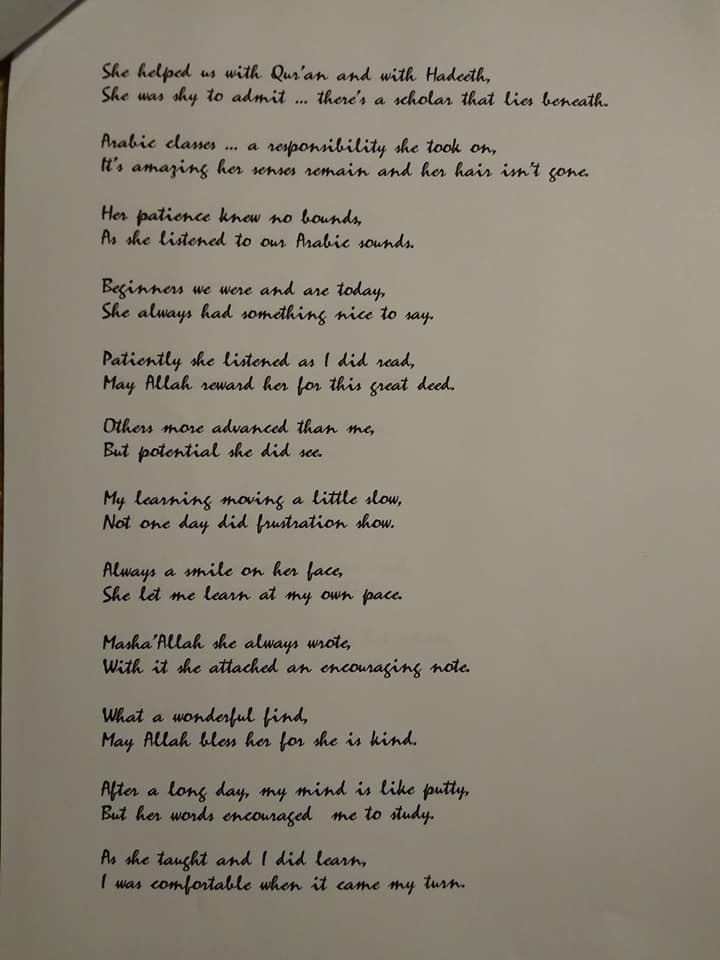 She helped us with Qur'an and with Hadeeth,
She was shy to admit ... there's a scholar that lies beneath.
Arabic classes ... a responsibility she took on,
It's amazing her senses remain and her hair isn't gone.
Her patience knew no bounds,
As she listened to our Arabic sounds.
Beginners we were and are today,
She always had something nice to say.
Patiently she listened as I did read,
May Allah reward her for this great deed.
Others more advanced than me,
But potential she did see.
My learning moving a little slow,
Not one day did frustration show.
Always a smile on her face,
She let me learn at my own pace.
Masha'Allah she always wrote,
With it she attached an encouraging note.
What a wonderful find,
May Allah bless her for she is kind.
After a long day, my mind is like putty,
But her words encouraged me to study.
As she taught and I did learn,
I was comfortable when it came my turn.